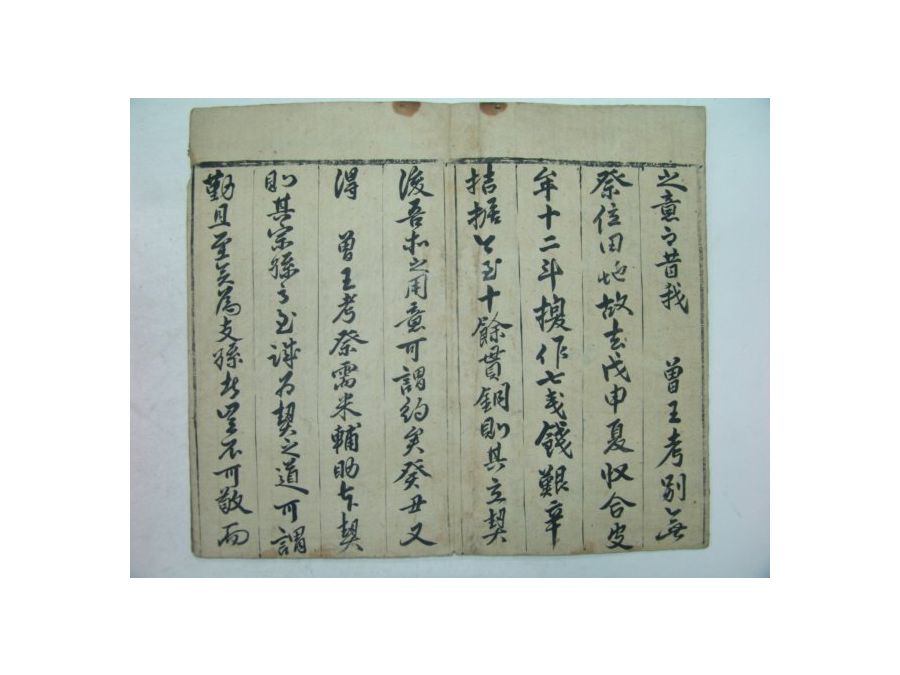 之意而昔我 曾王考別無
祭位田地故去戊申夏收合皮
牟十二斗擾作七戔錢艱辛
拮据今至十餘貫銅則其立契
後吾未之用意可謂約矣癸丑又
得 曾王考祭需米輔助於契
則其宗孫之至誠為契之道可謂
勤且至矣為支孫者豈不可敬而